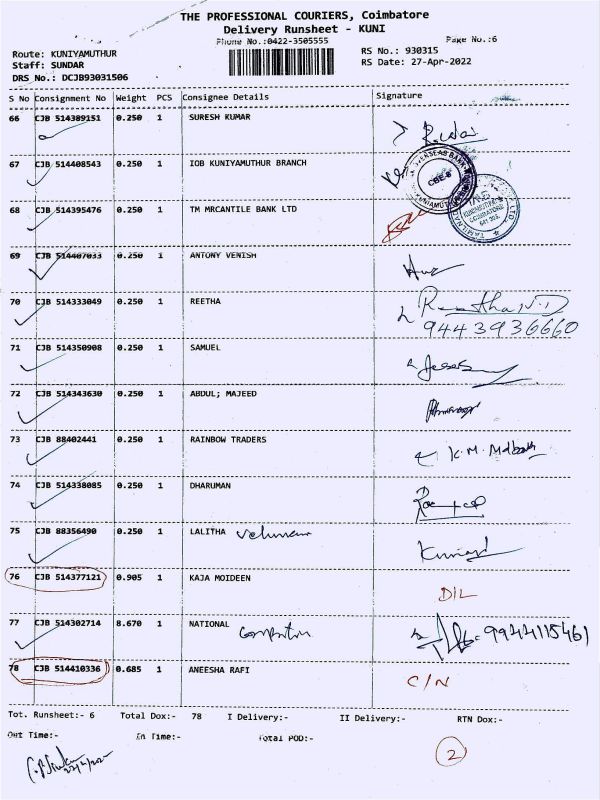 THE PROFESSIONAL COURIERS, Coimbatore
Delivery Runsheet - KUNI
Phone No :0422-3505555 Page No.:6
Route: KUNIYAMUTHUR RS No.: 930315
Staff: SUNDAR RS Date: 27-Apr-2022
DRS No.: DCJB93031506
S No Consignment No Weight PCS Consignee Details Signature
66 CJB 514389151 0.250 1 SURESH KUMAR
67 CJB 514408543 0.250 1 IOB KUNIYAMUTHUR BRANCH
68 CJB 514395476 0.250 1 TM MRCANTILE BANK LTD
69 CJB 514407033 0.250 1 ANTONY VENISH
70 CJB 514333049 0.250 1 REETHA
9443936660
71 CJB 514350908 0.250 1 SAMUEL
72 CJB 514343630 0.250 1 ABDUL; MAJEED
73 CJB 88402441 0.250 1 RAINBOW TRADERS K.M.
74 CJB 514338085 0.250 1 DHARUMAN
75 CJB 88356490 0.250 1 LALITHA
76 CJB 514377121 0.905 1 KAJA MOIDEEN D/L
77 CJB 514302714 8.670 1 NATIONAL 9944115461
78 CJB 514410336 0.685 1 ANEESHA RAFI C/N
Tot. Runsheet:- 6 Total Dox:- 78 I Delivery:- II Delivery:- RTN Dox:-
Out Time:- In Time:- Total POD:-
2